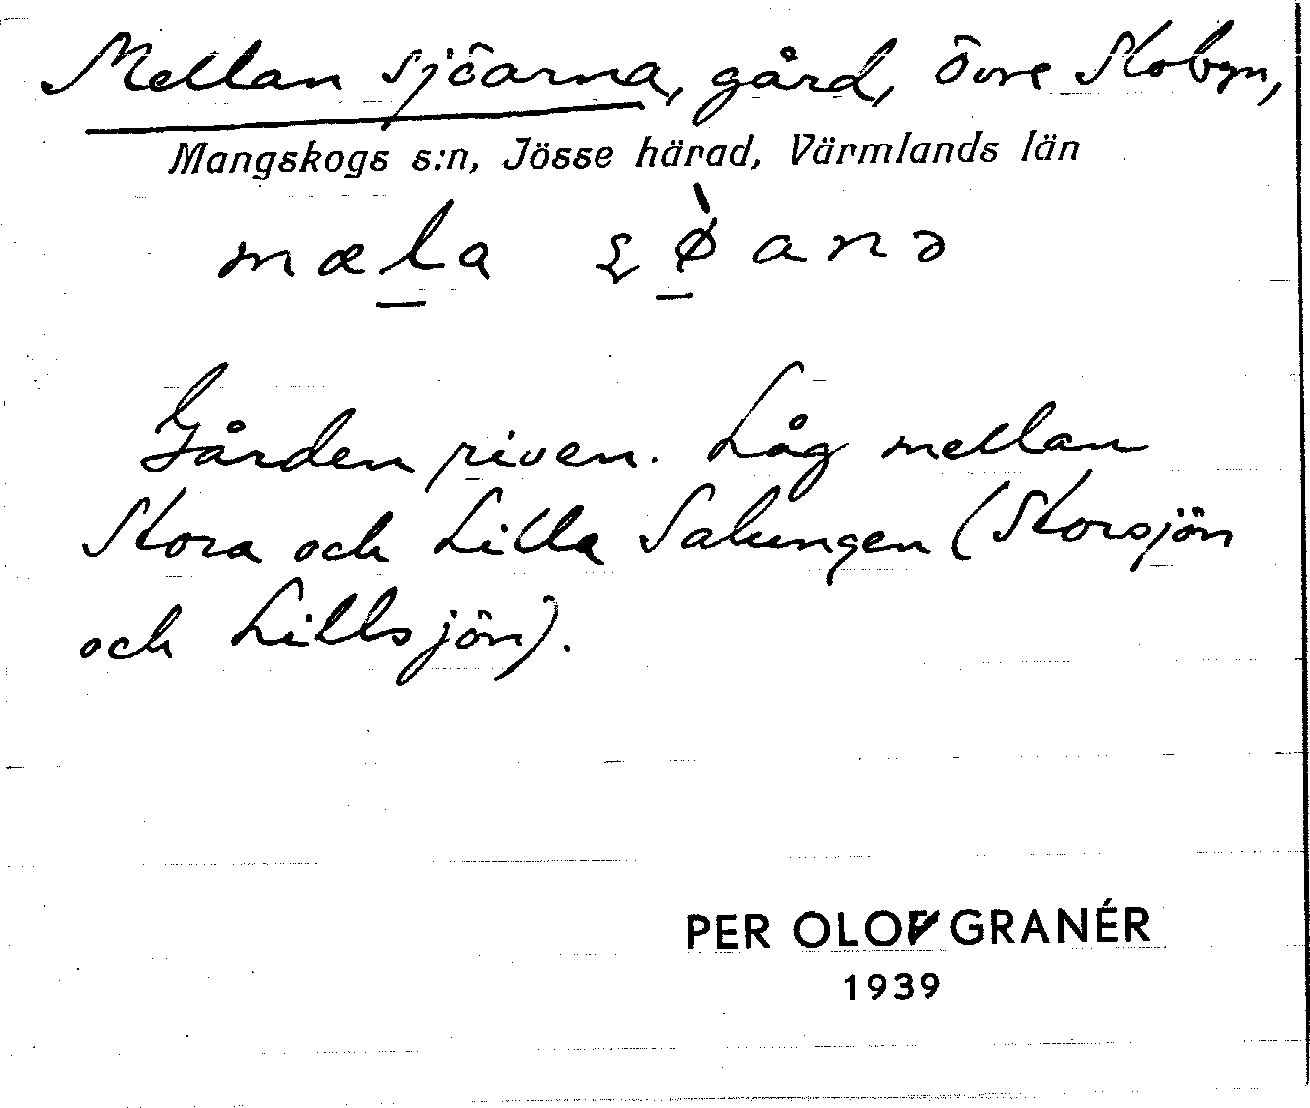 Mellan sjöarna, gård, Övre Skobyn,
Mangskogs s:n, Jösse härad, Värmlands län
mæla ʂø̀anə
Gården riven. Låg mellan
Stora och Lilla Salungen (Storsjön
och Lillsjön).
PER OLOF GRANÉR
1939